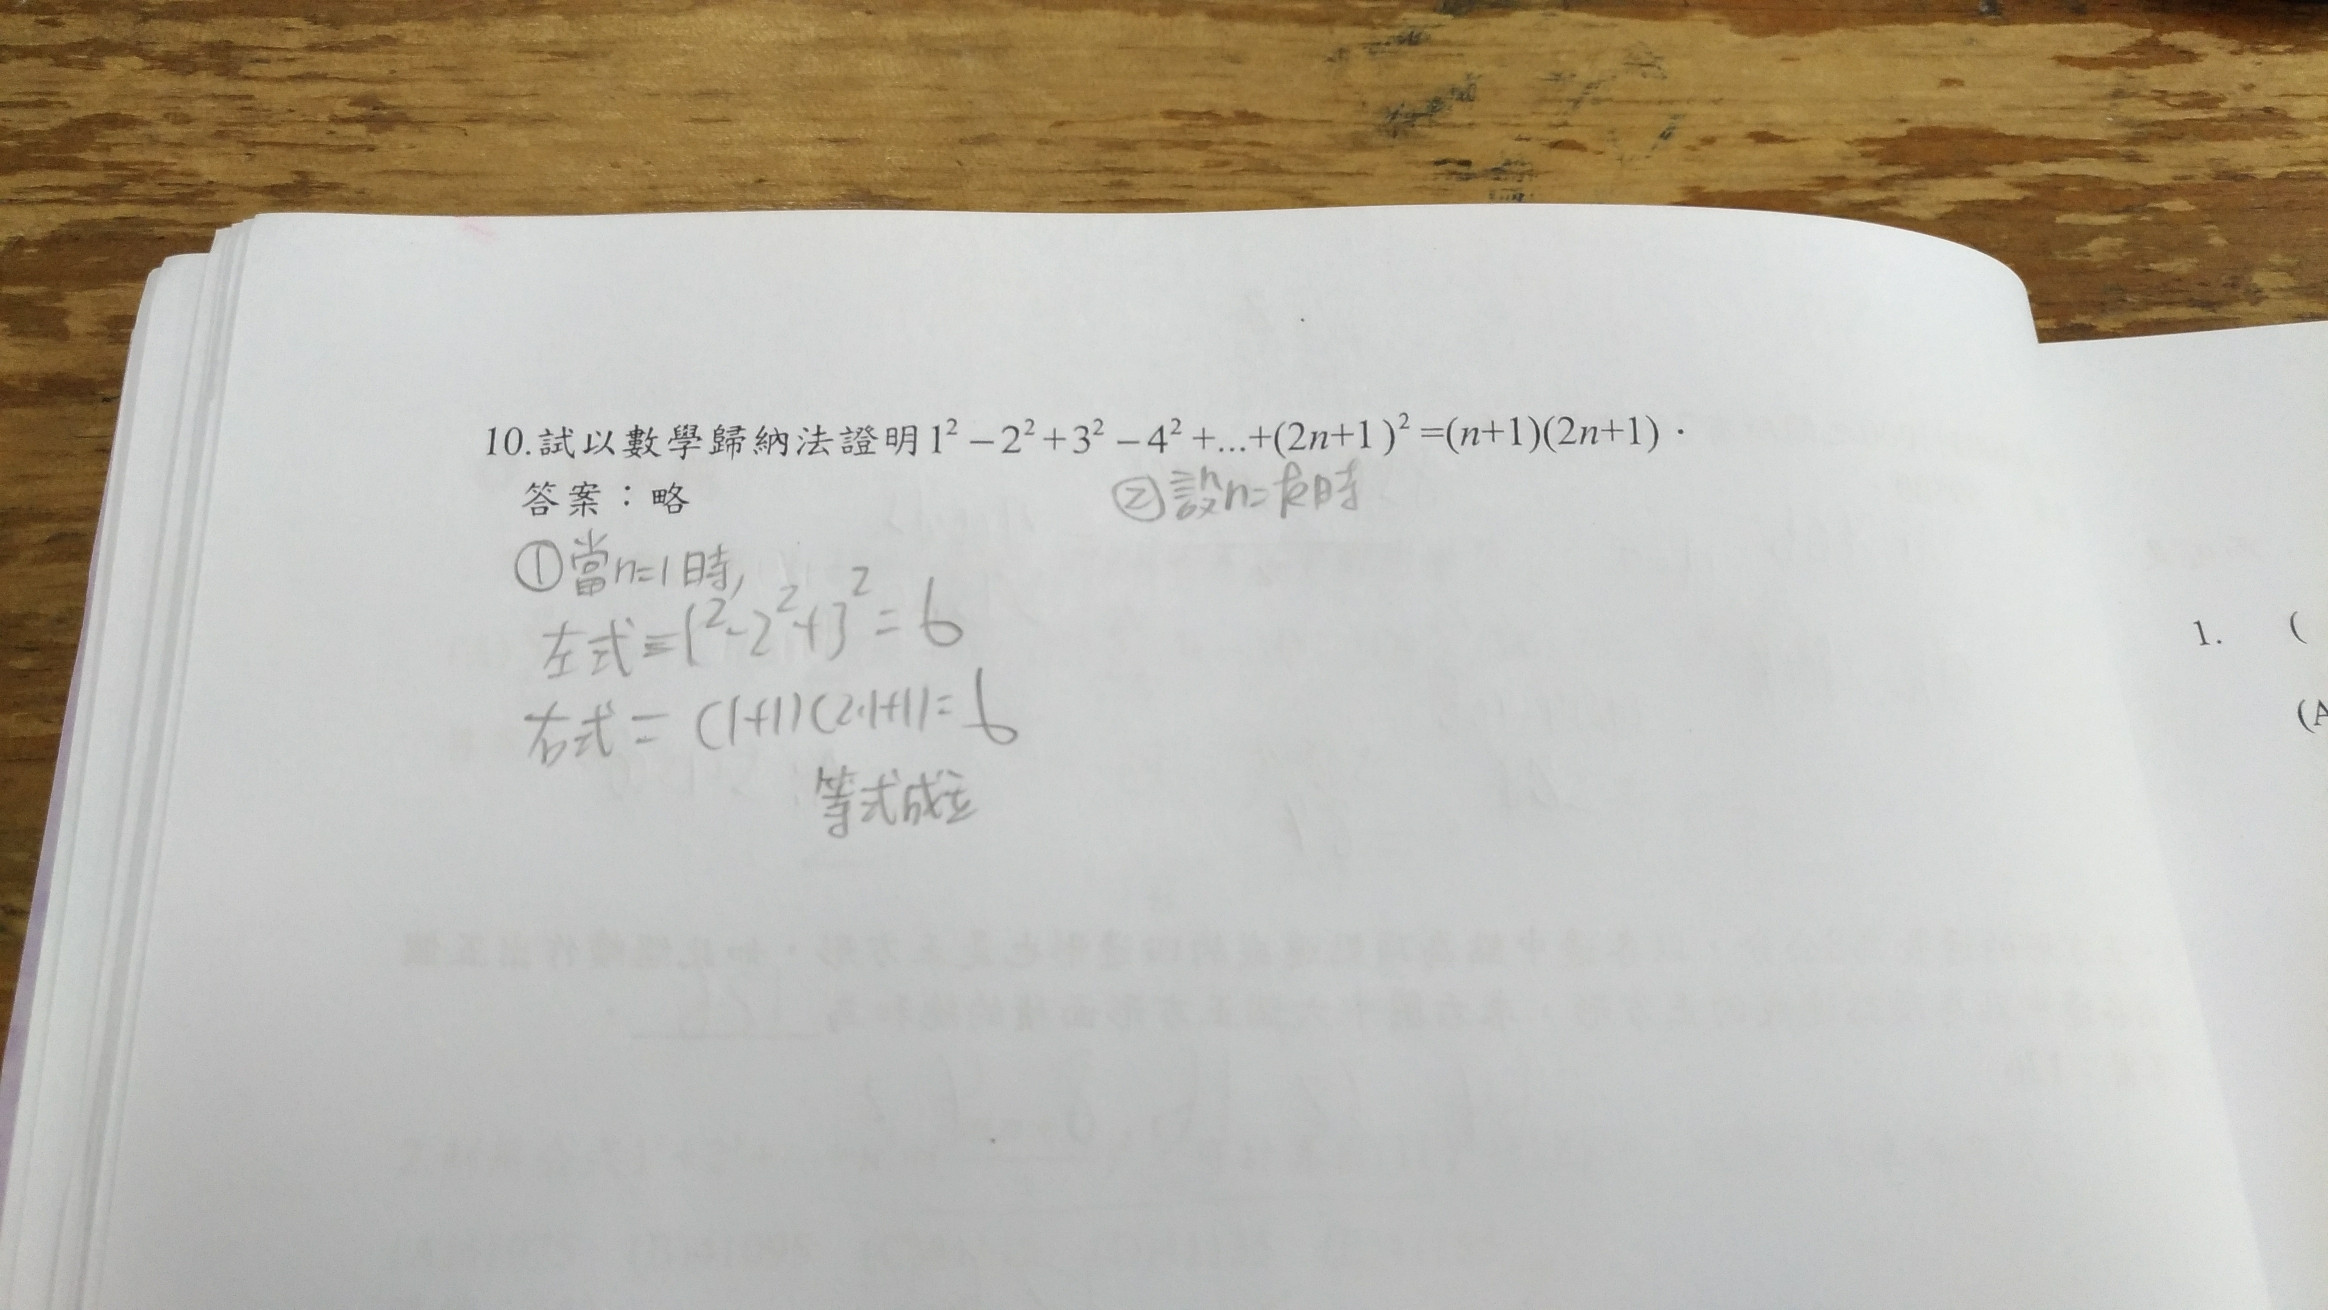 10.試以數學歸納法證明1² − 2² + 3² − 4² +...+(2n+1)² =(n+1)(2n+1)．
答案：略
①當n=1時,
左式=1²-2²+3²=6
右式=(1+1)(2·1+1)=6
等式成立
②設n=k時
1. (
(A